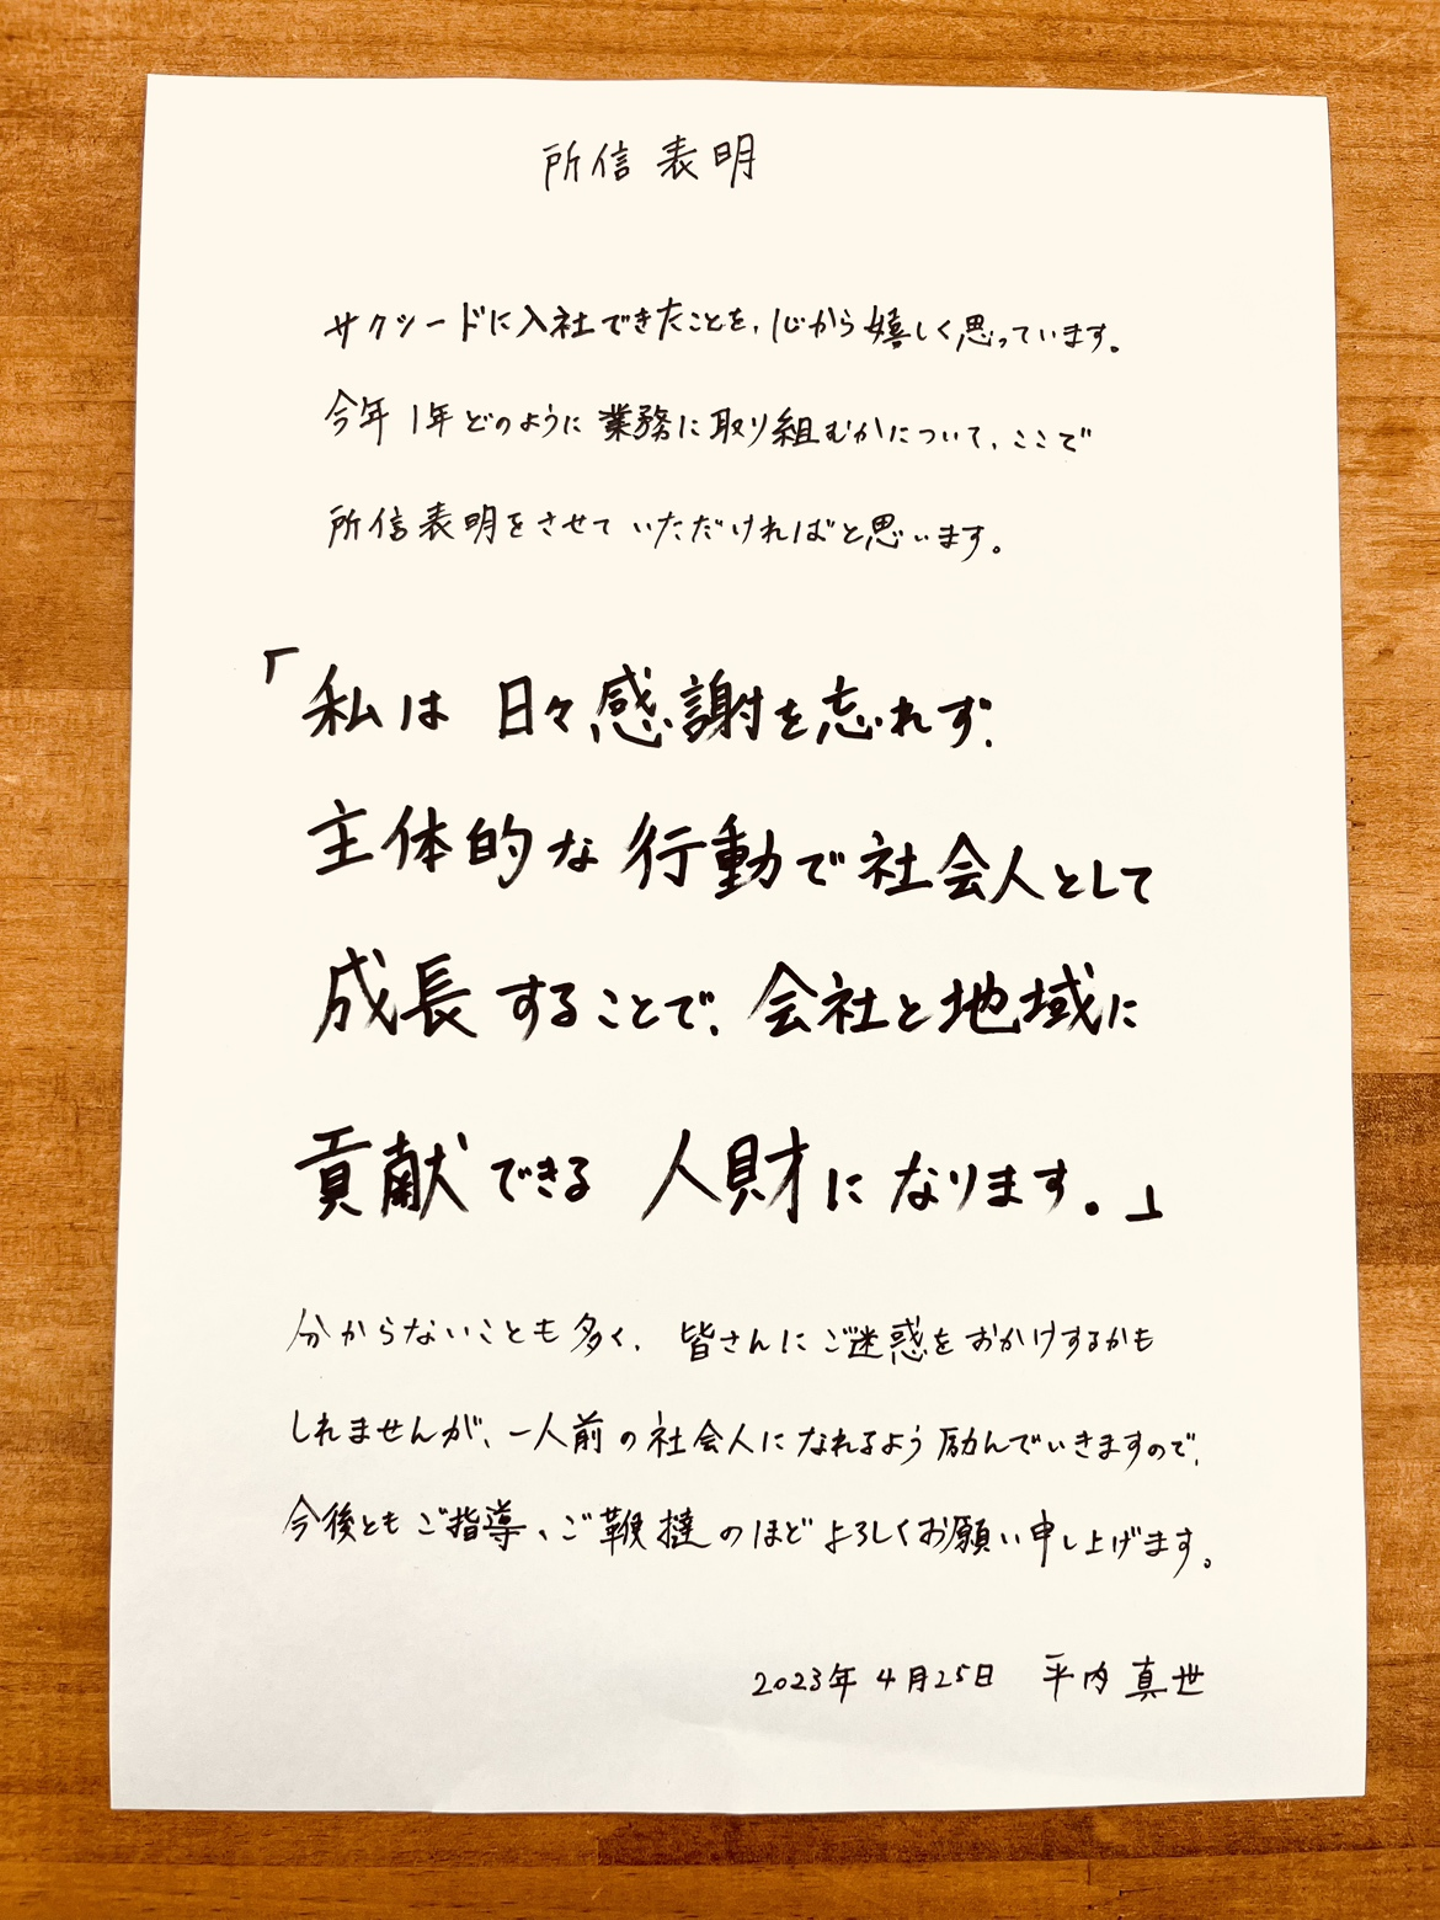 所信表明
サクシードに入社できたことを、心から嬉しく思っています。
今年1年どのように業務に取り組むかについて、ここで
所信表明をさせていただければと思います。
「私は日々感謝を忘れず、
主体的な行動で社会人として
成長することで、会社と地域に
貢献できる人財になります。」
分からないことも多く、皆さんにご迷惑をおかけするかも
しれませんが、一人前の社会人になれるよう励んでいきますので、
今後ともご指導、ご鞭撻のほどよろしくお願い申し上げます。
2023年4月25日 平内真世